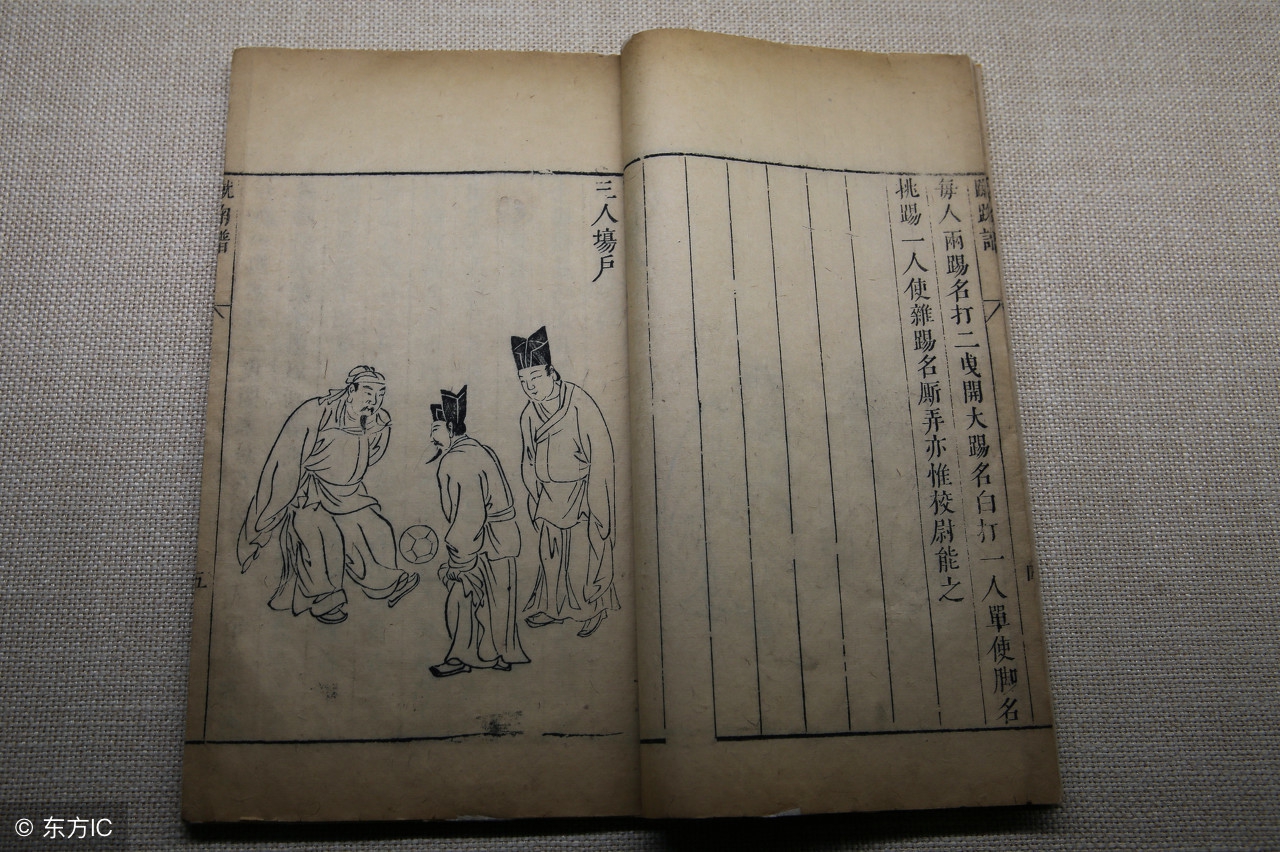 蹴踘譜
每人兩踢名打二曳開大踢名白打一人單使脚名
挑踢一人使雜踢名厮弄亦惟校尉能之
三人場戶
蹴踘譜
五
© 东方IC